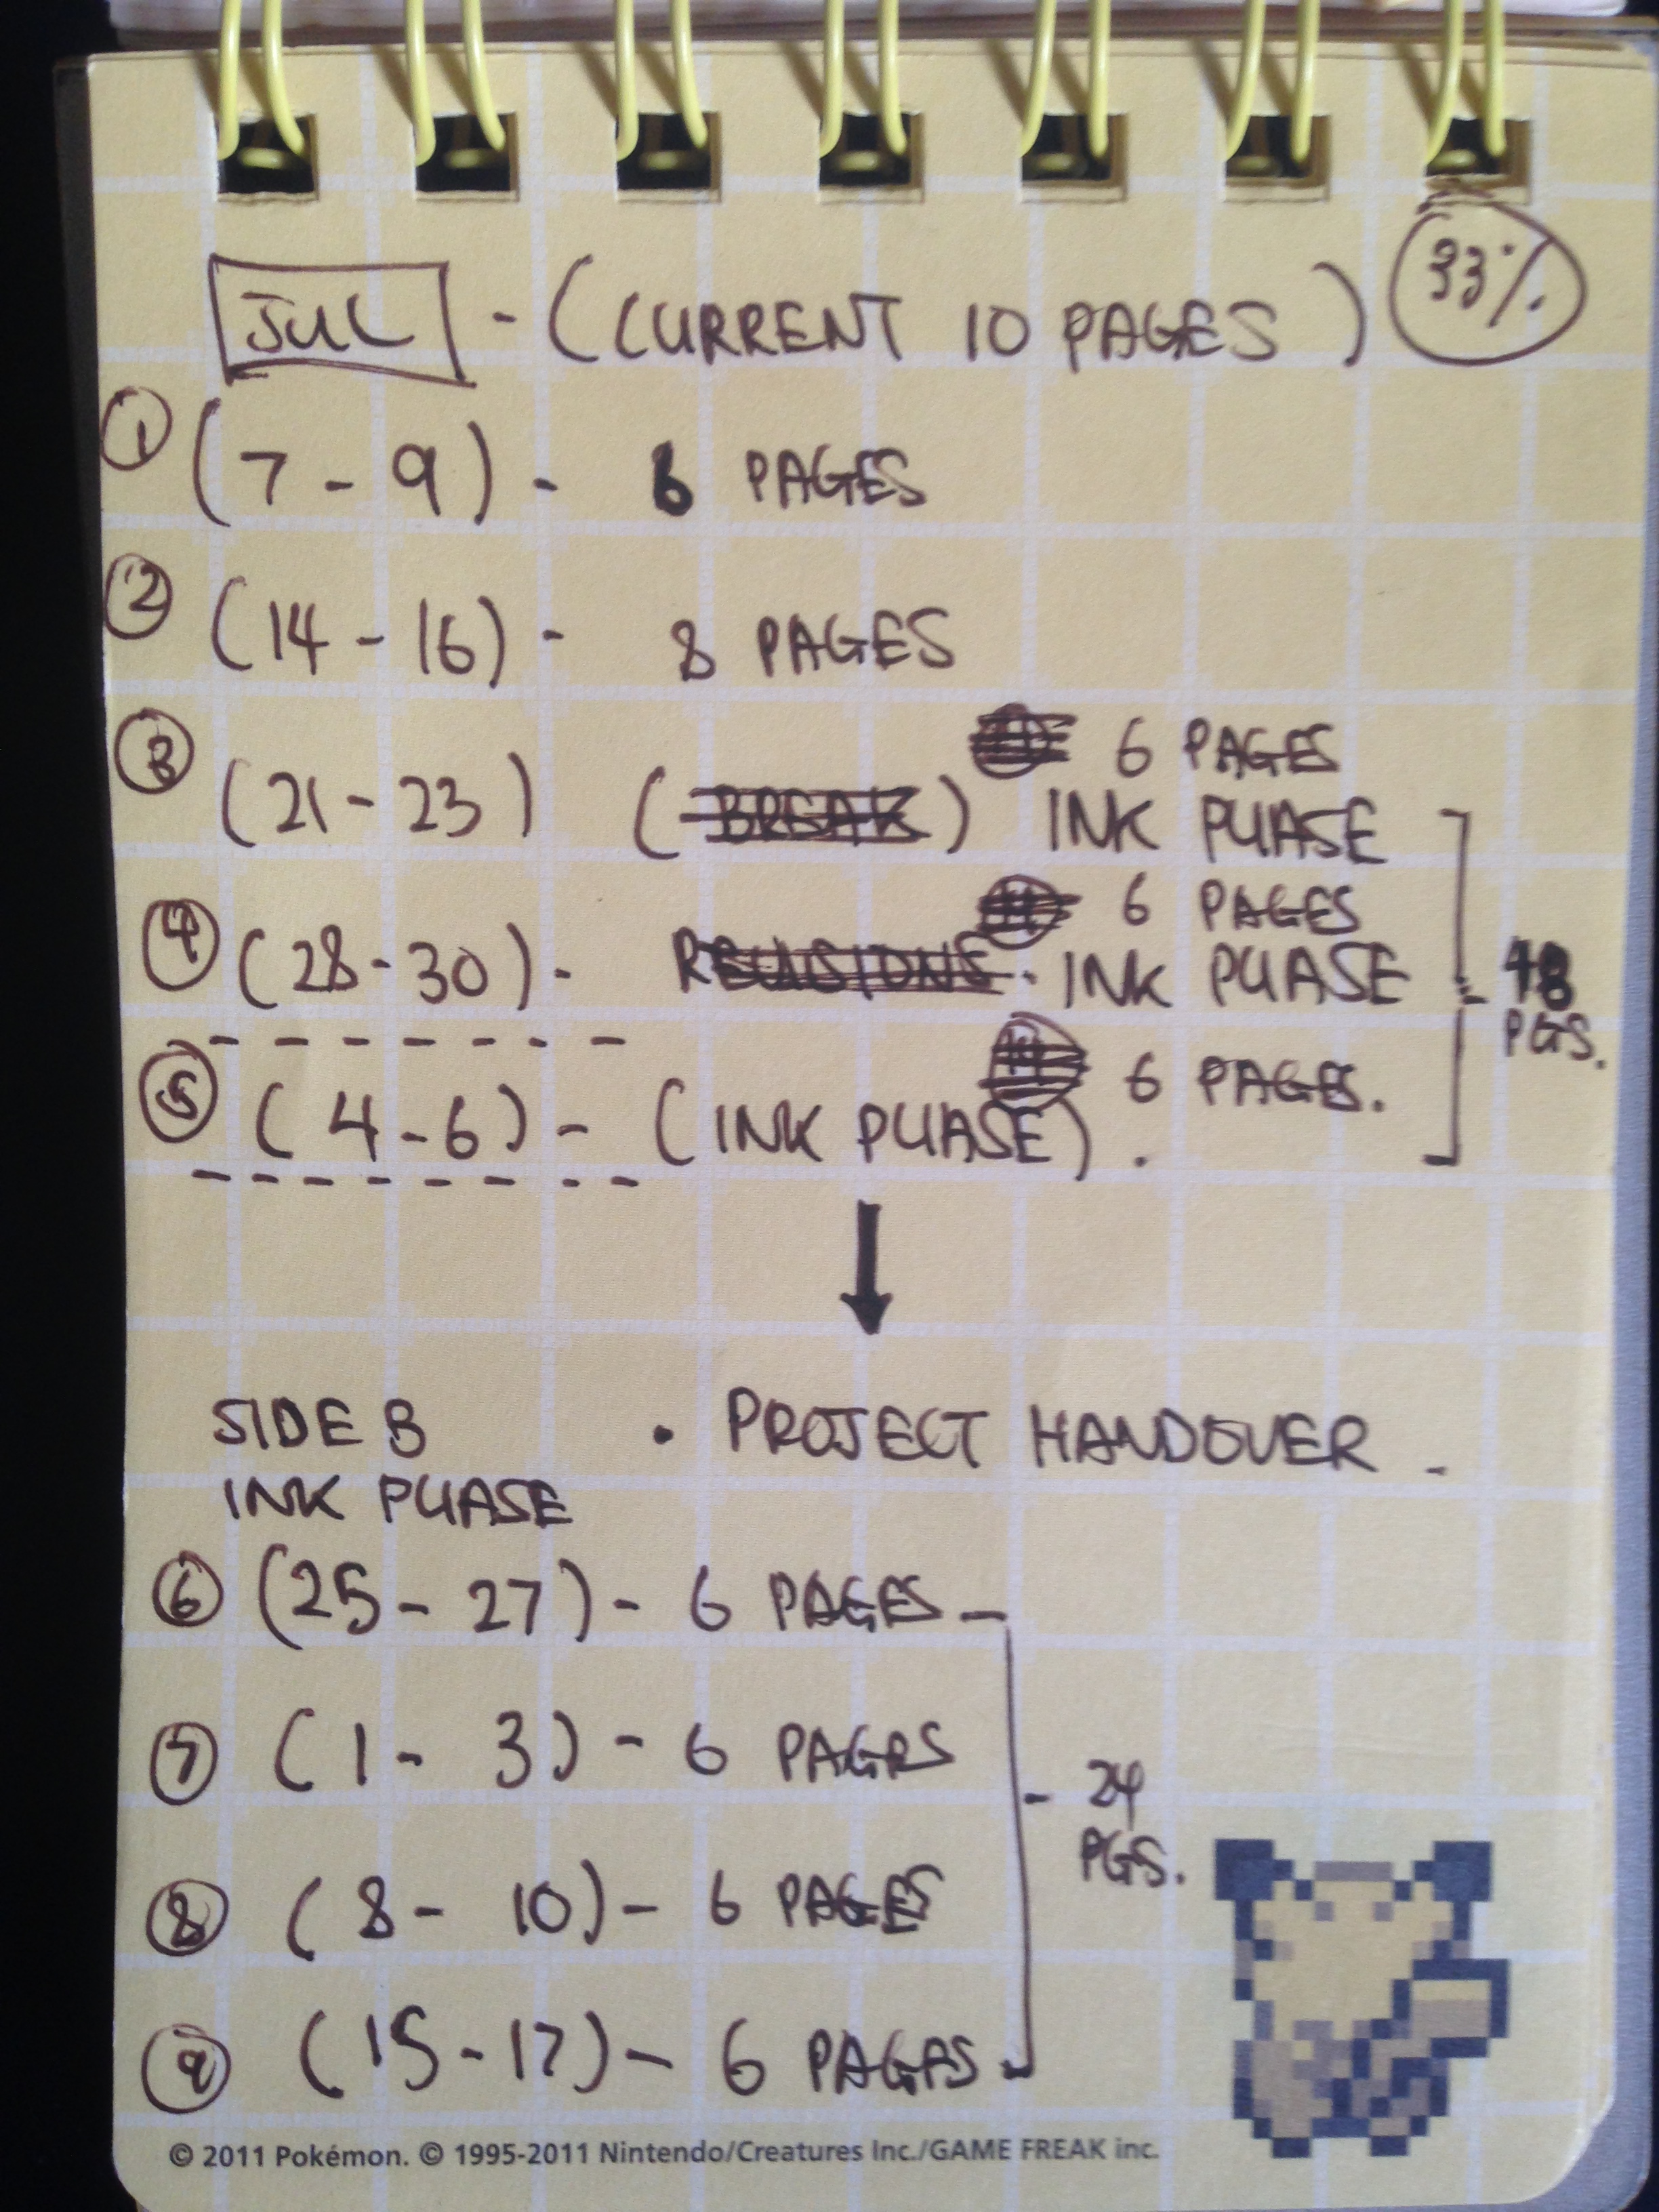 JUL - (CURRENT 10 PAGES) 33%
① (7 - 9) - 6 PAGES
② (14 - 16) - 8 PAGES
6 PAGES
③ (21 - 23) (BREAK) INK PHASE
6 PAGES
④ (28 - 30) - REVISIONS. INK PHASE
PGS.
6 PAGES.
⑤ (4 - 6) - (INK PHASE).
SIDE B . PROJECT HANDOVER.
INK PHASE
⑥ (25 - 27) - 6 PAGES
⑦ (1 - 3) - 6 PAGES
24
PGS.
⑧ (8 - 10) - 6 PAGES
⑨ (15 - 17) - 6 PAGES
© 2011 Pokémon. © 1995-2011 Nintendo/Creatures Inc./GAME FREAK inc.